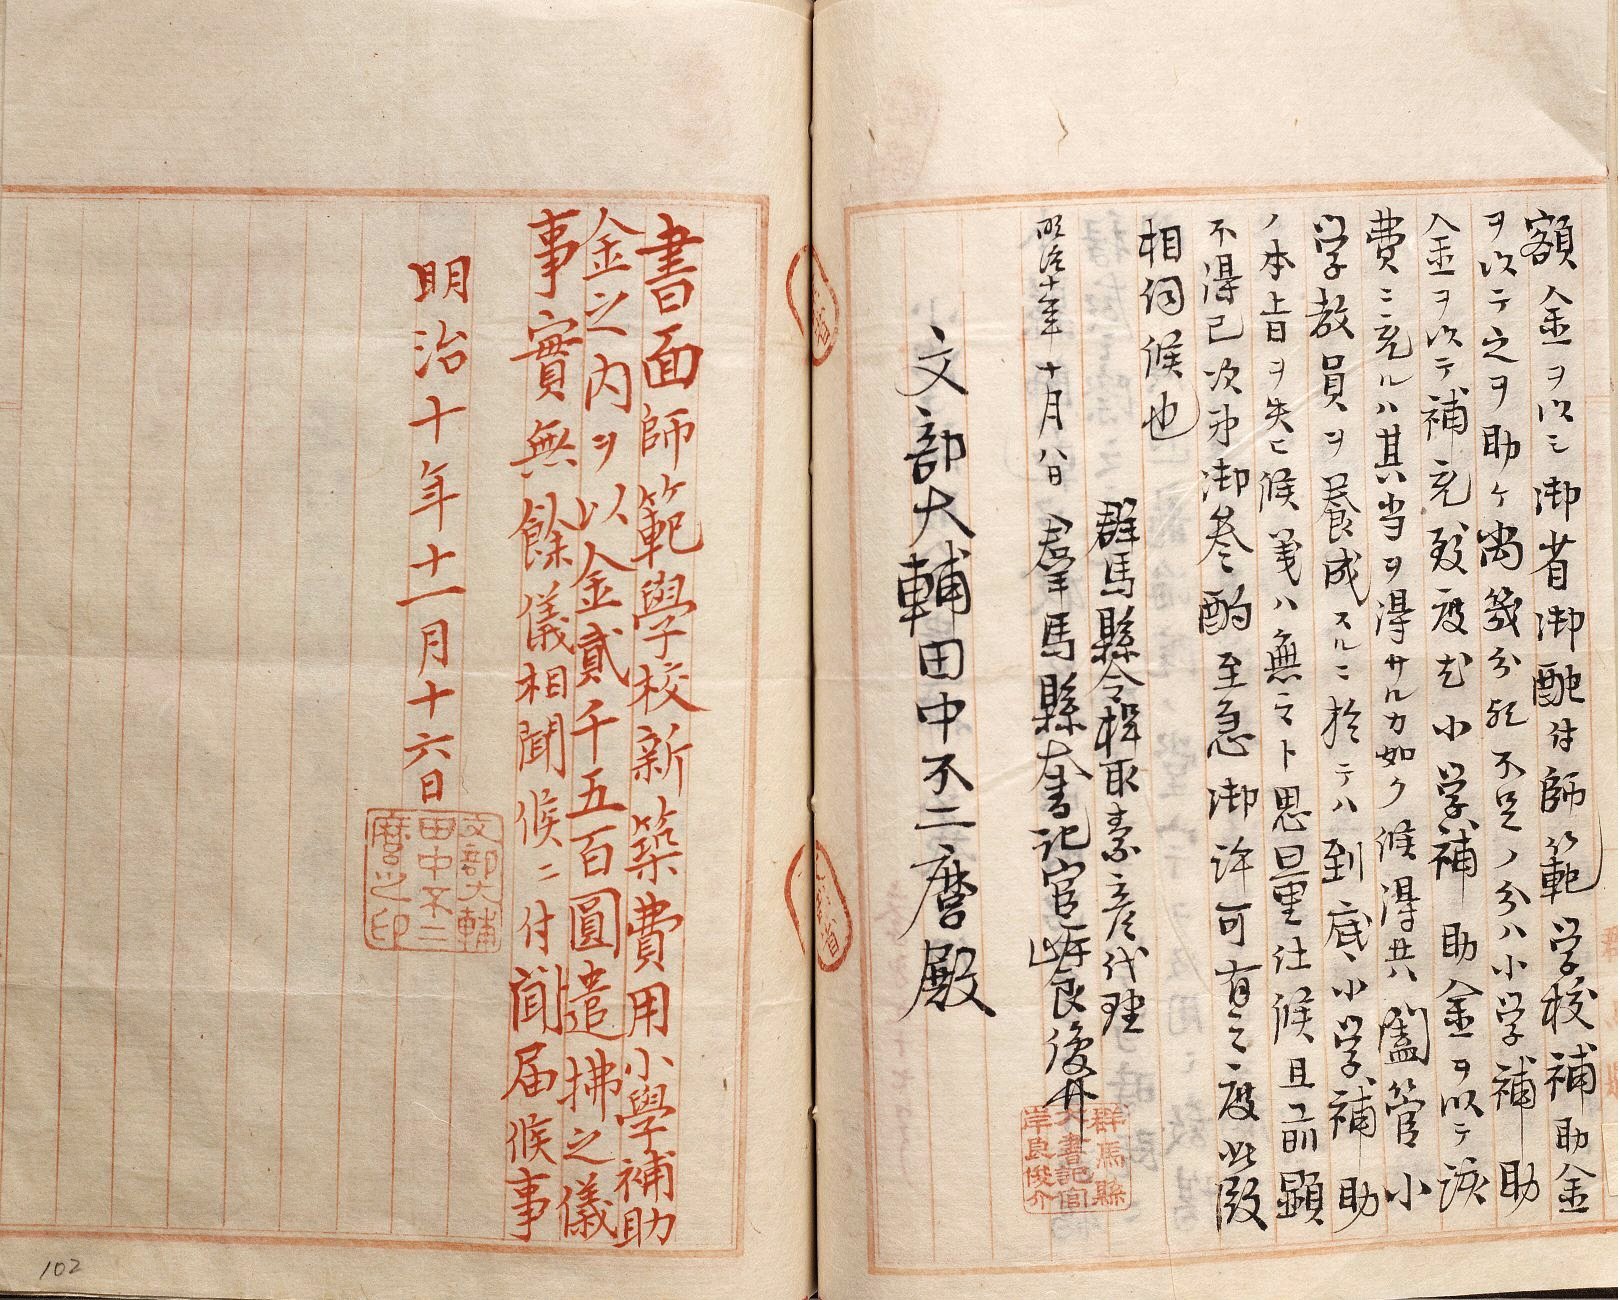 額金ヲ以シ御省御配付師範学校補助金
ヲ以テ之ヲ助ケ尚幾分歟不足ノ分ハ小学補助
金ヲ以テ補充致度尤小学補助金ヲ以テ該
費ニ充ルハ其当ヲ得サルカ如ク候得共闔管小
学教員ヲ養成スルニ於テハ到底小学補助
ノ本旨ヲ失ヒ候義ハ無之ト思量仕候且前顕
不得已次第御参酌至急御許可有之度此段
相伺候也
群馬縣令楫取素彦代理
明治十年十月八日 群馬縣大書記官岸良俊介
群馬縣
大書記官
岸良俊介
文部大輔田中不二麿殿
書面師範學校新築費用小學補助
金之内ヲ以金貳千五百圓遣拂之儀
事實無餘儀相聞候ニ付聞届候事
明治十年十一月十六日
文部大輔
田中不二
麿之印
102